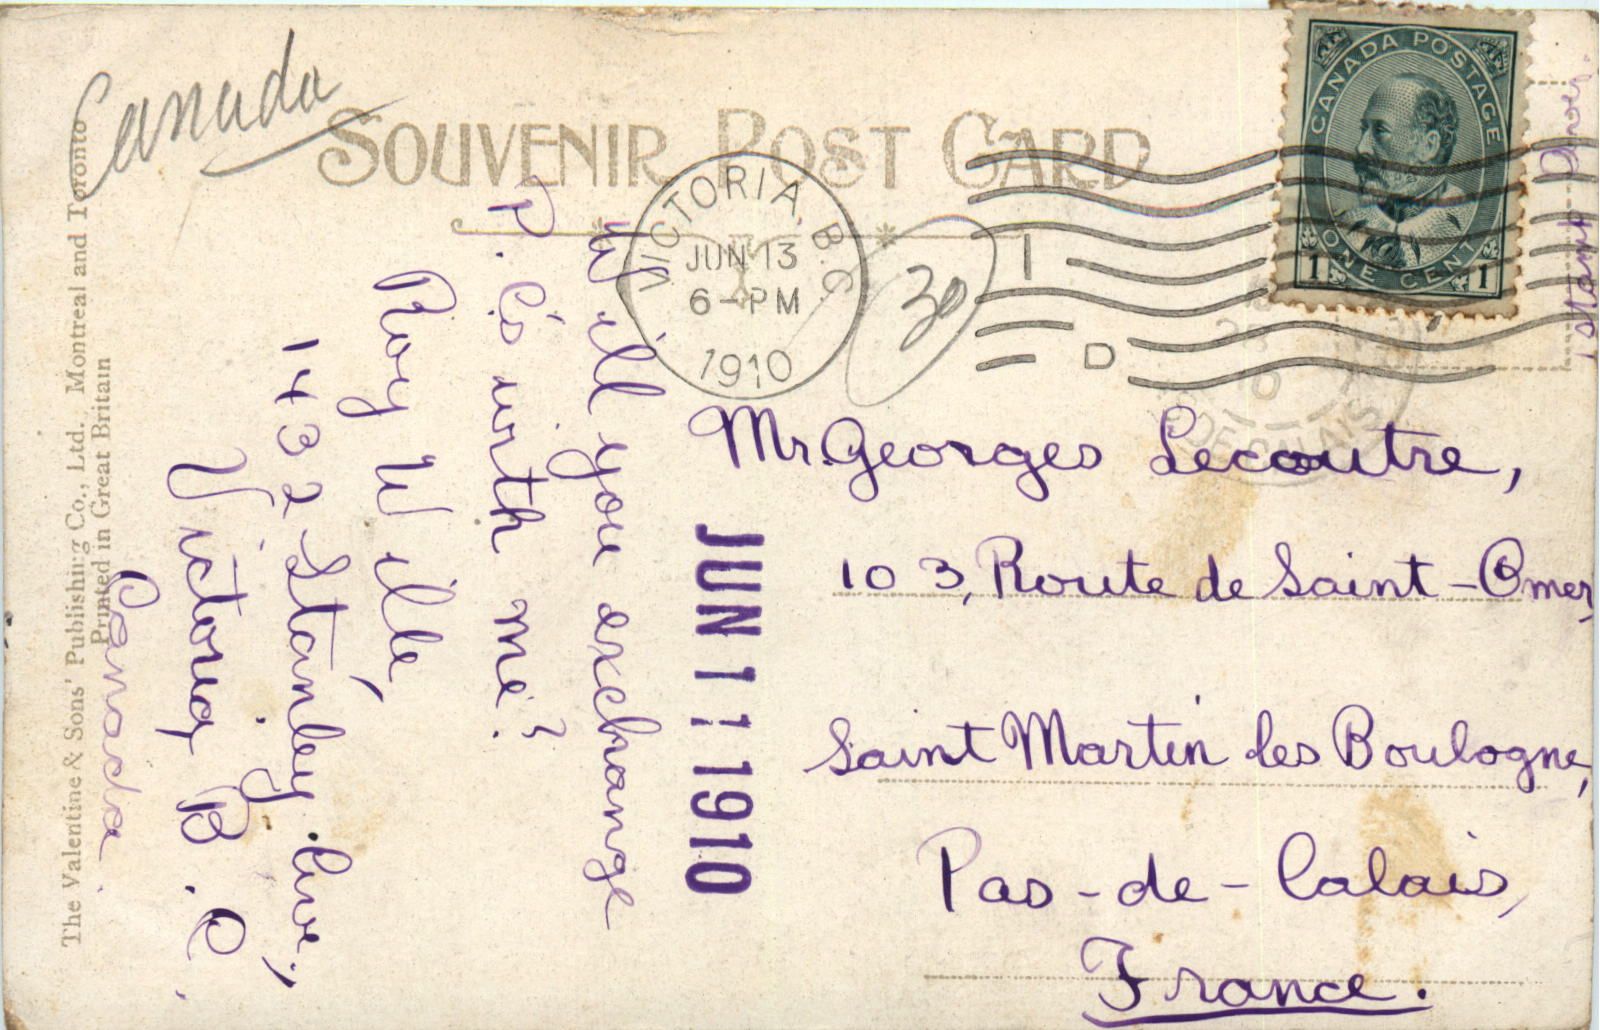 Canada
SOUVENIR POST CARD
CANADA POSTAGE
ONE CENT
1 1
VICTORIA, B.C.
JUN 13
6-PM
1910
I
D
30
PAS DE CALAIS
Stamp Over.
Will you exchange
P. C's with me?
Roy Wille,
1432 Stanley Ave.,
Victoria, B.C.
Canada.
JUN 11 1910
Mr. Georges Lecoutre,
103, Route de Saint-Omer,
Saint Martin les Boulogne,
Pas-de-Calais,
France.
The Valentine & Sons' Publishing Co., Ltd., Montreal and Toronto
Printed in Great Britain